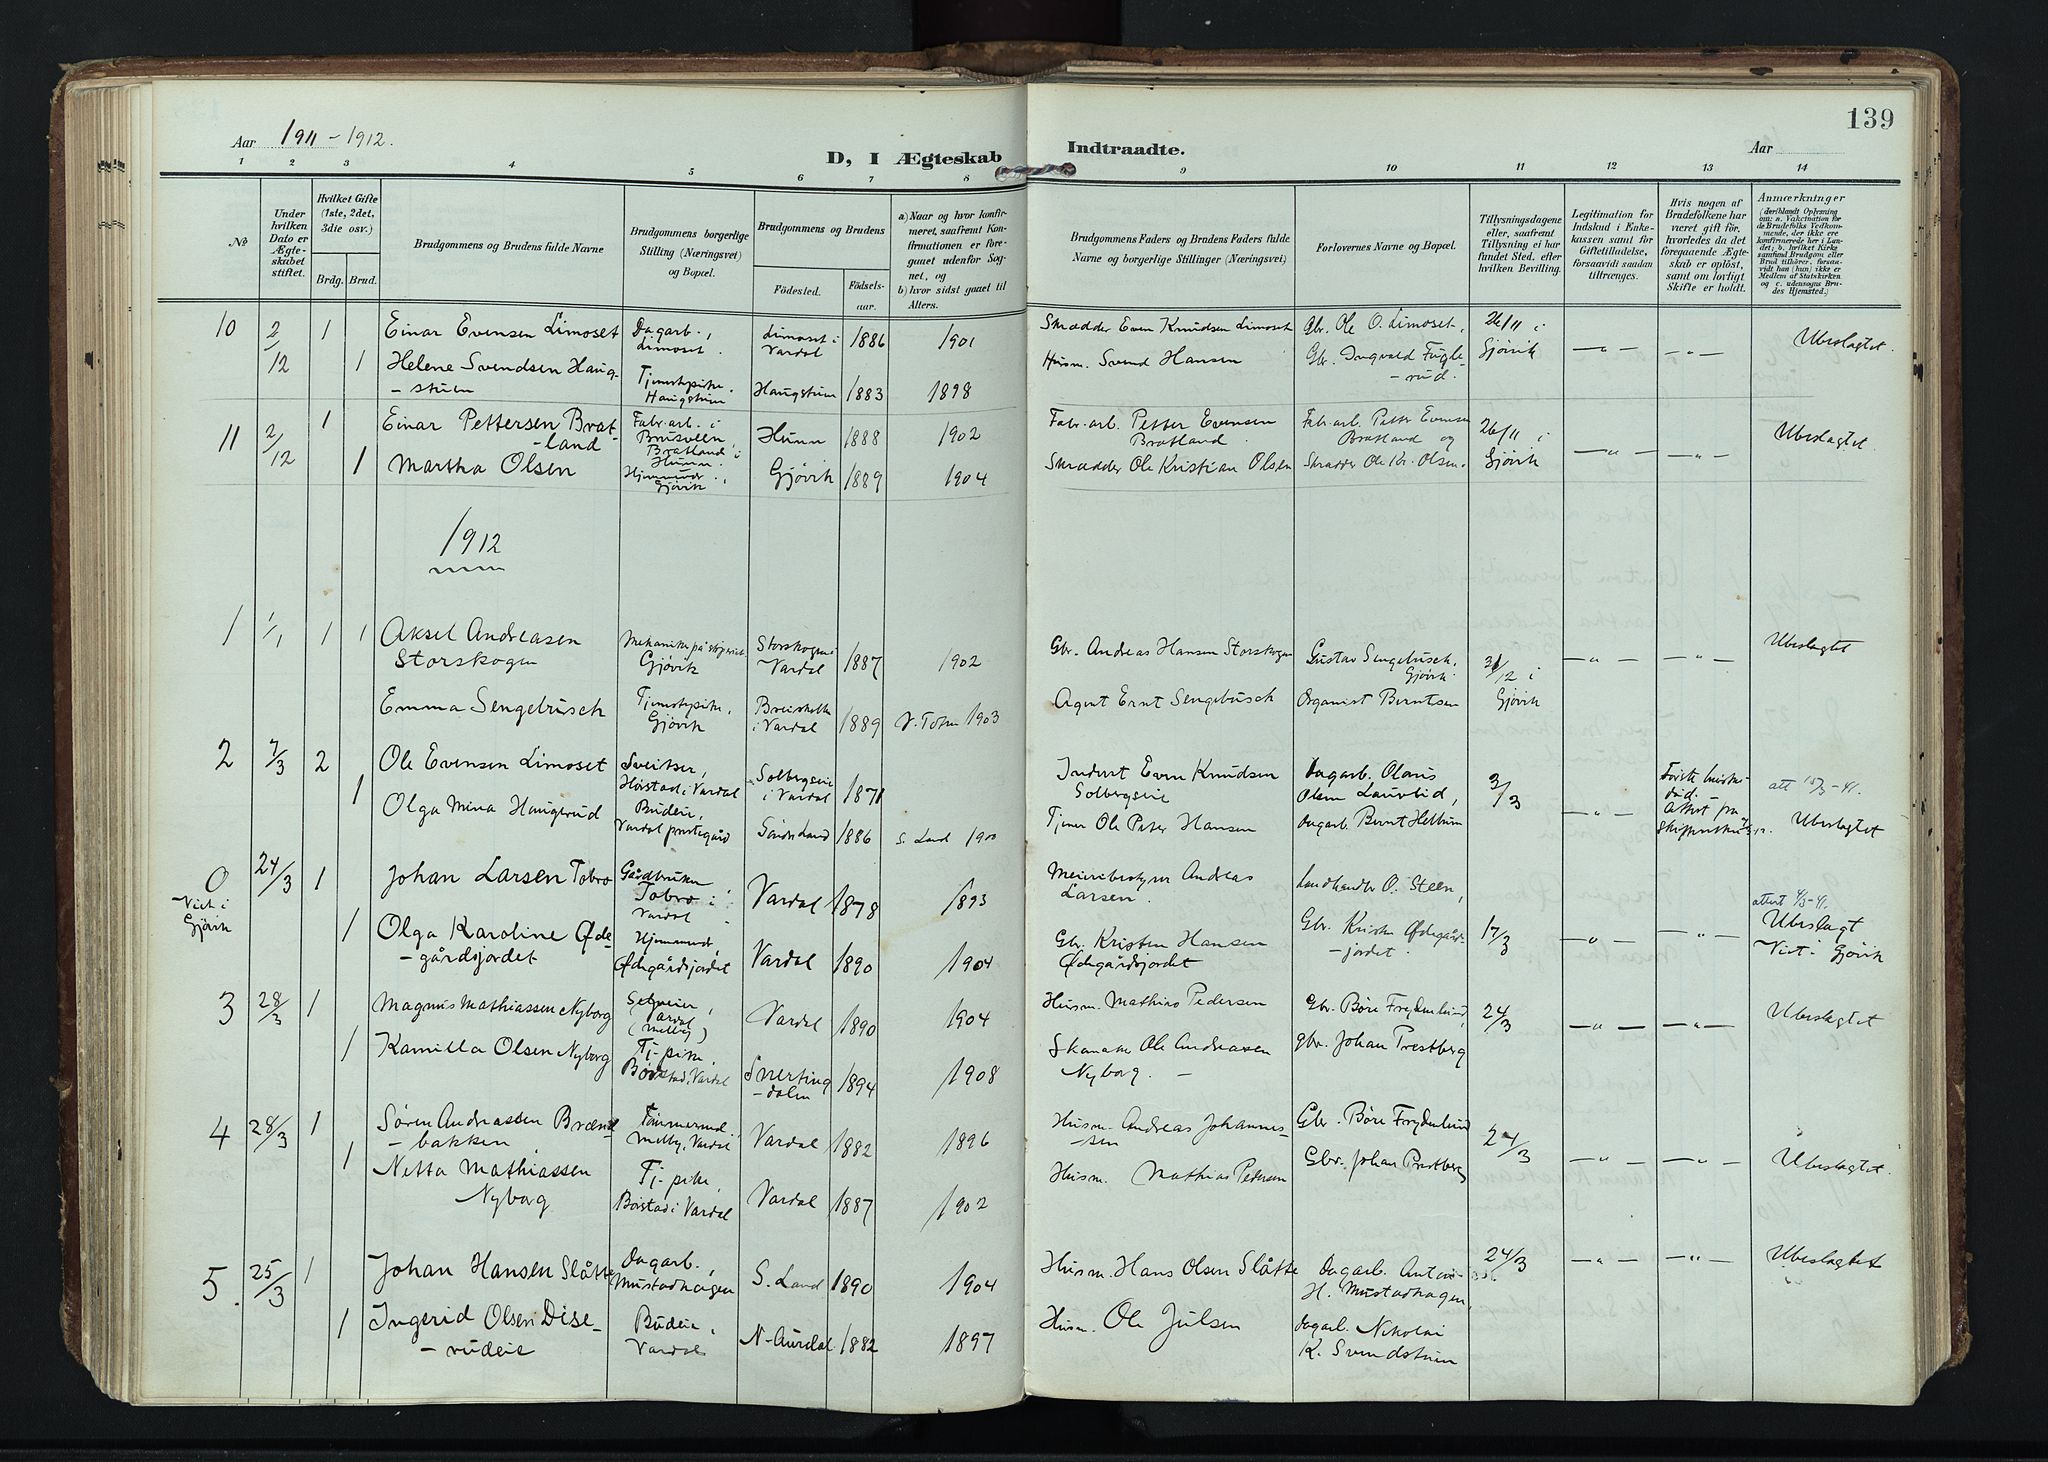 139
Aar 1911-1912.
D, I Ægteskab Indtraadte. Aar
1 2 3 4 5 6 7 8 9 10 11 12 13 14
No
Under hvilken Dato er Ægteskabet stiftet.
Hvilket Gifte (1ste, 2det, 3die osv.)
Brdg. Brud.
Brudgommens og Brudens fulde Navne
Brudgommens borgerlige Stilling (Næringsvei) og Bopæl.
Brudgommens og Brudens
Födested. Födsels-aar.
a) Naar og hvor konfirmeret, saafremt Konfirmationen er foregaaet udenfor Sognet, og
b) hvor sidst gaaet til Alters.
Brudgommens Faders og Brudens Faders fulde Navne og borgerlige Stillinger (Næringsvei)
Forlovernes Navne og Bopæl.
Tillysningsdagene eller, saafremt Tillysning ei har fundet Sted, efter hvilken Bevilling.
Legitimation for Indskud i Enkekassen samt for Giftetilladelse, forsaavidt saadan tiltrænges.
Hvis nogen af Brudefolkene har været gift för, hvorledes da det foregaaende Ægteskab er oplöst, samt om lovligt Skifte er holdt.
Anmærkninger
(deriblandt Oplysning om: a. Vakcination for de Brudefolks Vedkommende, der ikke ere konfirmerede her i Landet; b. hvilket Kirkesamfund Brudgom eller Brud tilhörer, forsaavidt han (hun) ikke er Medlem af Statskirken, og c. udensogns Brudes Hjemsted.)
10 2/12 1 Einar Evensen Limoset Dagarb., Limoset. Limoset i Vardal 1886 1901 Skrædder Even Knudsen Limoset Gbr. Ole O. Limoset, 26/11 i Gjøvik —"— —"— Ubeslagtet.
1 Helene Svendsen Haug-stuen Tjenestepike, Haugstuen Haugstuen 1883 1898 Husm. Svend Hansen Gbr. Ingvald Fugle-rud.
11 2/12 1 Einar Pettersen Brat-land Fabr.arb. i Brusveen, Bratland i Hunn. Hunn 1888 1902 Fabr.arb. Petter Evensen Bratland. Fabr.arb. Petter Evensen Bratland og 26/11 i Gjøvik —"— —"— Ubeslagtet
1 Martha Olsen Hjemmevær., Gjøvik Gjøvik 1889 1904 Skrædder Ole Kristian Olsen Skrædder Ole Kr. Olsen.
1912
1 1/1 1 1 Aksel Andreasen Storskogen Gjøvik Storskogen i Vardal 1887 1902 Gbr. Andreas Hansen Storskogen Gustav Sengebusch, Gjøvik. 31/12 i Gjøvik —"— —"— Ubeslagtet
Emma Sengebusch Tjenestepike, Gjøvik i Vardal 1889 V. Toten 1903 Agent Ernt Sengebusch Organist Berntsen
2 7/3 2 Ole Evensen Limoset Sveitser, Høistad i Vardal Solbergseie i Vardal 1871 Inderst Even Knudsen Solbergseie Dagarb. Olaus Olsen Lauvlid, 3/3 —"— Første hustru død. — Attest fra att 15/3-41.
1 Olga Mina Haugerud Budeie, Vardal prestegård Søndre Land 1886 S. Land 1900 Tjener Ole Peter Hansen Dagarb. Bernt Hellum Ubeslagtet
0 Viet i Gjøvik 24/3 1 Johan Larsen Tobro Gårdbruker Tobro i Vardal Vardal 1878 1893 Meieribestyrer Andreas Larsen. Landhandler O. Steen, 17/3 —"— —"— attest 4/3-41. Ubeslagt Viet i Gjøvik
1 Olga Karoline Øde-gårdsjordet Hjemmevær, Ødegårdsjordet Vardal 1890 1904 Gbr. Kristen Hansen Ødegårdsjordet Gbr. Kristen Ødegård-jordet.
3 28/3 1 Magnus Mathiassen Nyborg Vardal (Melby) Vardal 1890 1904 Husm. Mathias Pedersen Gbr. Børe Frydenlund, 24/3 —"— —"— Ubeslagtet
1 Kamilla Olsen Nyborg Tj.pike, Børstad, Vardal Snerting-dalen 1894 1908 Skomaker Ole Andreasen Nyborg. — Gbr. Johan Prestberg
4 28/3 1 Søren Andreassen Brænd-bakken Tømmermand Melby, Vardal Vardal 1882 1896 Husm. Andreas Johannes-sen Gbr. Børe Frydenlund 24/3 —"— —"— Ubeslagtet.
1 Netta Mathiassen Nyborg Tj.pike, Børstad i Vardal Vardal 1887 1902 Husm. Mathias Pedersen Gbr. Johan Prestberg
5. 25/3 1 Johan Hansen Slåtte Dagarb., Mustadhagen S. Land 1890 1904 Husm. Hans Olsen Slåtte Dagarb. Anton H. Mustadhagen, 24/3 —"— —"— Ubeslagtet
1 Ingerid Olsen Dise-rudeie Budeie, Vardal N-Aurdal 1882 1897 Husm. Ole Julsen Dagarb. Nikolai K. Svendstuen